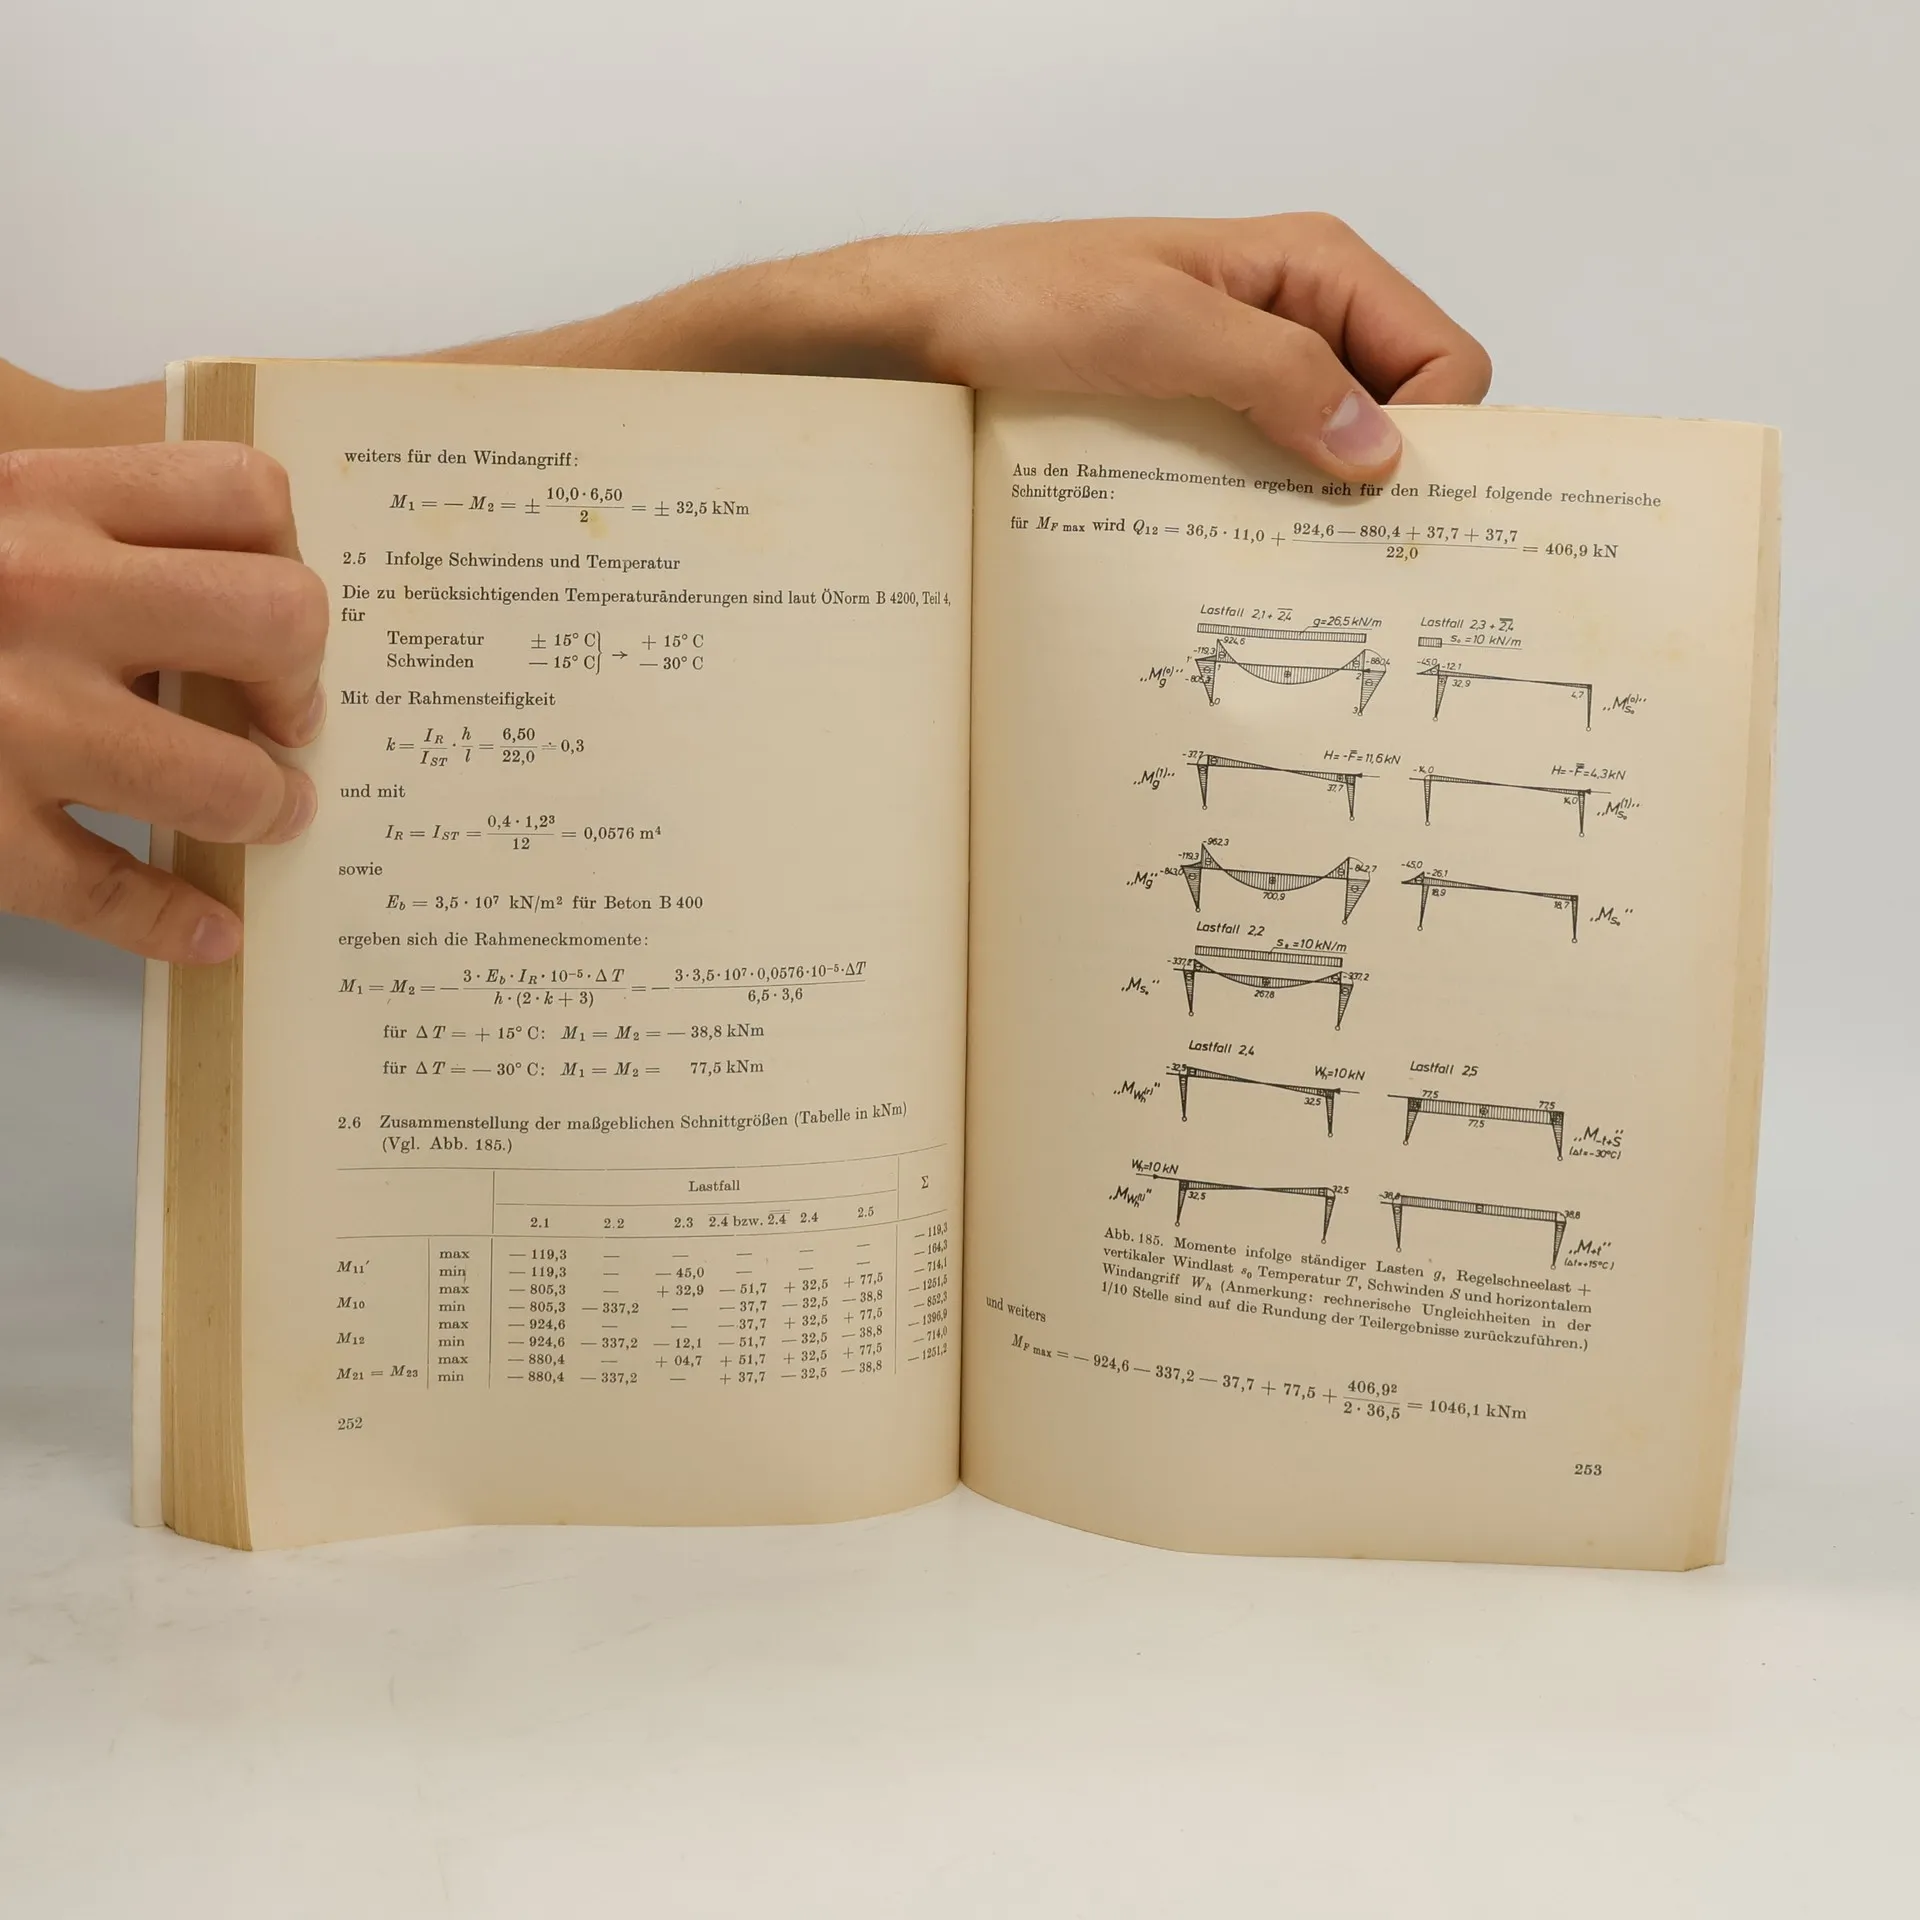 weiters für den Windangriff:
M₁ = — M₂ = ± 10,0 · 6,50 / 2 = ± 32,5 kNm
2.5 Infolge Schwindens und Temperatur
Die zu berücksichtigenden Temperaturänderungen sind laut ÖNorm B 4200, Teil 4,
für
Temperatur ± 15° C} → + 15° C
Schwinden — 15° C} → — 30° C
Mit der Rahmensteifigkeit
k = I_R / I_ST · h / l = 6,50 / 22,0 ≐ 0,3
und mit
I_R = I_ST = 0,4 · 1,2³ / 12 = 0,0576 m⁴
sowie
E_b = 3,5 · 10⁷ kN/m² für Beton B 400
ergeben sich die Rahmeneckmomente:
M₁ = M₂ = — 3 · E_b · I_R · 10⁻⁵ · Δ T / h · (2 · k + 3) = — 3 · 3,5 · 10⁷ · 0,0576 · 10⁻⁵ · ΔT / 6,5 · 3,6
für Δ T = + 15° C: M₁ = M₂ = — 38,8 kNm
für Δ T = — 30° C: M₁ = M₂ = 77,5 kNm
2.6 Zusammenstellung der maßgeblichen Schnittgrößen (Tabelle in kNm)
(Vgl. Abb. 185.)
Lastfall Σ
2.1 2.2 2.3 2.4 bzw. 2.4 2.4 2.5
M₁₁′ max — 119,3 — — — — — — 119,3
min — 119,3 — — 45,0 — — — — 164,3
M₁₀ max — 805,3 — + 32,9 — 51,7 + 32,5 + 77,5 — 714,1
min — 805,3 — 337,2 — — 37,7 — 32,5 — 38,8 — 1251,5
M₁₂ max — 924,6 — — — 37,7 + 32,5 + 77,5 — 852,3
min — 924,6 — 337,2 — 12,1 — 51,7 — 32,5 — 38,8 — 1396,9
M₂₁ = M₂₃ max — 880,4 — + 04,7 + 51,7 + 32,5 + 77,5 — 714,0
min — 880,4 — 337,2 — + 37,7 — 32,5 — 38,8 — 1251,2
252
Aus den Rahmeneckmomenten ergeben sich für den Riegel folgende rechnerische
Schnittgrößen:
für M_F max wird Q₁₂ = 36,5 · 11,0 + 924,6 — 880,4 + 37,7 + 37,7 / 22,0 = 406,9 kN
Lastfall 2,1 + 2,4 g=26,5 kN/m
-924,6 -119,3 1' 1 -880,4 2 0 3
„M_g⁽⁰⁾"
Lastfall 2,3 + 2,4
s₀ =10 kN/m
-45,0 -12,1 32,9 4,7
„M_s₀⁽⁰⁾"
„M_g⁽¹⁾" -37,7 H=-F=11,6kN 37,7
H=-F=4,3kN „M_s₀⁽¹⁾"
„M_g" -119,3 -962,3 -842,7 700,9
-45,0 -26,1 18,9 18,7 „M_s₀"
Lastfall 2,2
s₀ =10 kN/m
„M_s₀" -337,2 -337,2 267,8
Lastfall 2,4
„M_Wh⁽ʳ⁾" -32,5 Wₕ=10 kN 32,5
Lastfall 2,5
77,5 77,5 77,5
„M_-t+S"
(Δt=-30°C)
Wₕ=10 kN
„M_Wh⁽ˡ⁾" 32,5 32,5
-38,8 -38,8
„M_+t"
(Δt=+15°C)
Abb. 185. Momente infolge ständiger Lasten g, Regelschneelast +
vertikaler Windlast s₀ Temperatur T, Schwinden S und horizontalem
Windangriff Wₕ (Anmerkung: rechnerische Ungleichheiten in der
1/10 Stelle sind auf die Rundung der Teilergebnisse zurückzuführen.)
und weiters
M_F max = — 924,6 — 337,2 — 37,7 + 77,5 + 406,9² / 2 · 36,5 = 1046,1 kNm
253